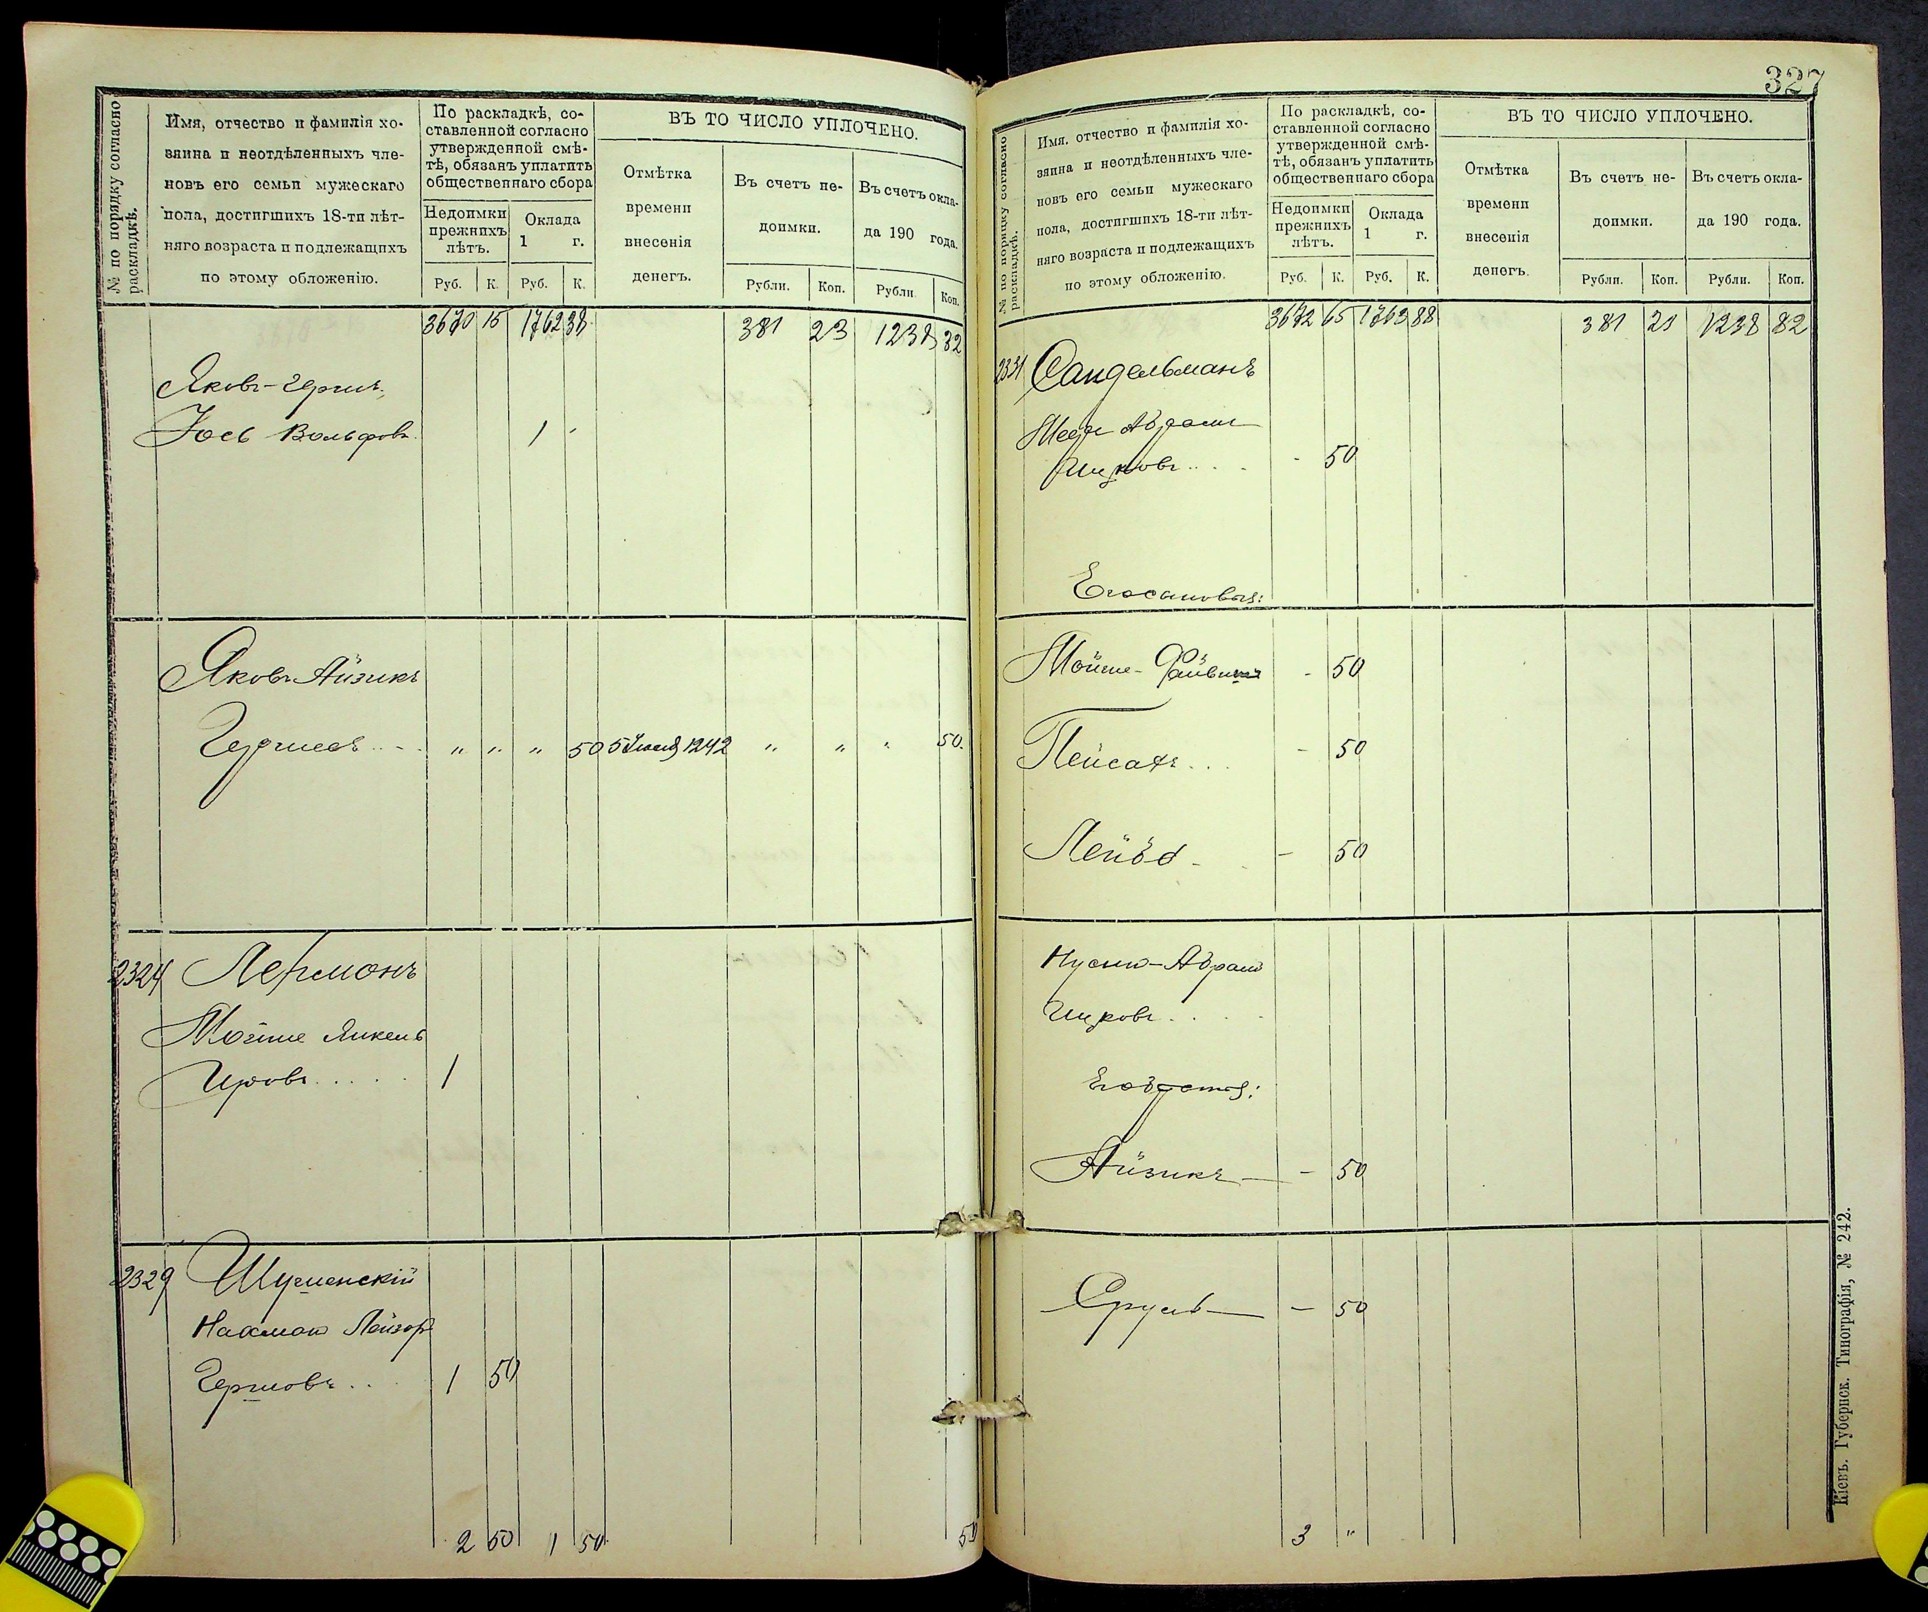 № по порядку согласно раскладкѣ.
Имя, отчество и фамилія хо-
зяина и неотдѣленныхъ чле-
новъ его семьи мужескаго
пола, достигшихъ 18-ти лѣт-
няго возраста и подлежащихъ
по этому обложенію.
По раскладкѣ, со-
ставленной согласно
утвержденной смѣ-
тѣ, обязанъ уплатить
общественнаго сбора
Недоимки
прежнихъ
лѣтъ.
Оклада
1 г.
Руб. К. Руб. К.
ВЪ ТО ЧИСЛО УПЛОЧЕНО.
Отмѣтка
времени
внесенія
денегъ.
Въ счетъ не-
доимки.
Рубли. Коп.
Въ счетъ окла-
да 190 года.
Рубли Коп.
3670 15 1762 38 381 23 1238 32
Яковъ-Герш
Іось Вольфовъ. 1 -
Яковъ Айзикъ
Гершовъ - " " " 50 5 1242 " " " 50.
2324 Лерманъ
Мойше Янкель
Ицковъ..... 1
2329 Шушенскій
Нахман Лейзор
Гершовъ... 1 50
2 50 1 50 50
327
№ по порядку согласно раскладкѣ.
Имя, отчество и фамилія хо-
зяина и неотдѣленныхъ чле-
новъ его семьи мужескаго
пола, достигшихъ 18-ти лѣт-
няго возраста и подлежащихъ
по этому обложенію.
По раскладкѣ, со-
ставленной согласно
утвержденной смѣ-
тѣ, обязанъ уплатить
общественнаго сбора
Недоимки
прежнихъ
лѣтъ.
Оклада
1 г.
Руб. К. Руб. К.
ВЪ ТО ЧИСЛО УПЛОЧЕНО.
Отмѣтка
времени
внесенія
денегъ.
Въ счетъ не-
доимки.
Рубли. Коп.
Въ счетъ окла-
да 190 года.
Рубли. Коп.
3672 65 1763 88 381 23 1238 82
2331 Сандельманъ
Абрам
Ицковъ.... - 50
Его сыновья:
Мойше-Файвиш - 50
Пейсахъ... - 50
Лейбъ - - 50
Нусин-Абрам
Ицковъ....
Его братья:
Айзикъ - - 50
Сруль - - 50
3 "
Кіевъ. Губернск. Типографія, № 242.